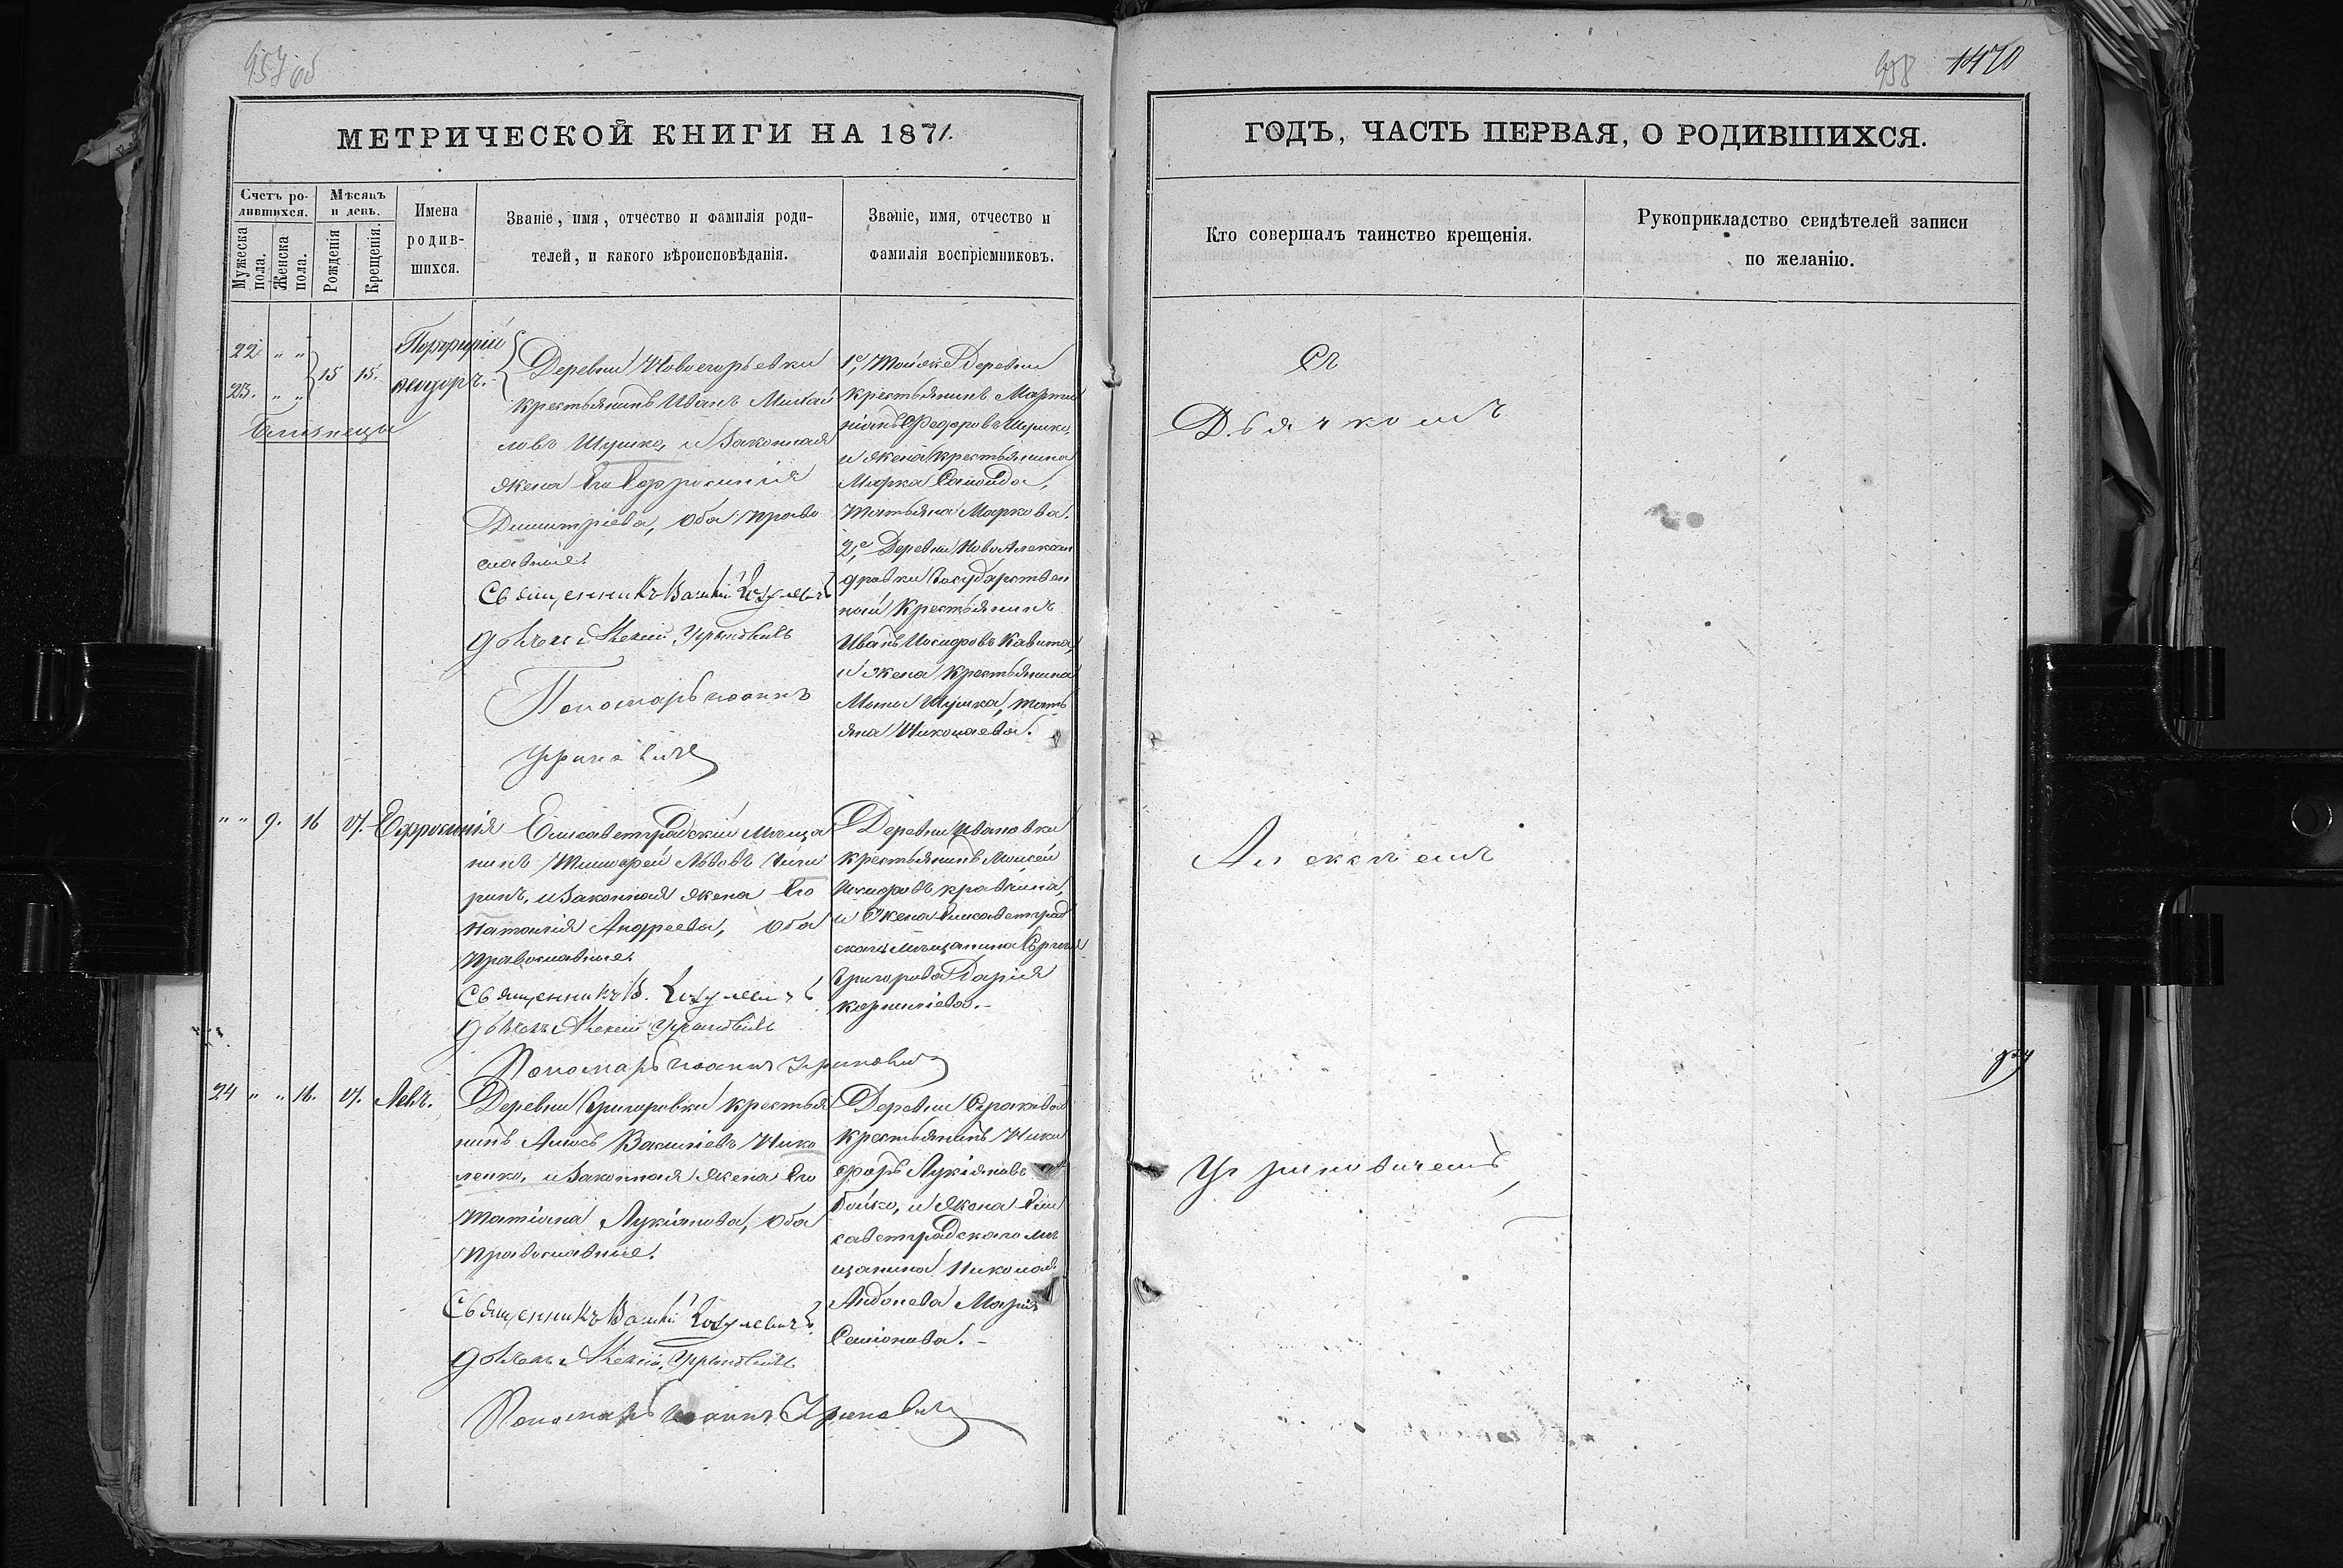 957 об
МЕТРИЧЕСКОЙ КНИГИ НА 1871.
Счетъ ро-
дившихся.
Мѣсяцъ
и день.
Мужеска
пола.
Женска
пола.
Рожденія
Крещенія.
Имена
родив-
шихся.
Званіе, имя, отчество и фамилія роди-
телей, и какого вѣроисповѣданія.
Званіе, имя, отчество и
фамилія воспріемниковъ.
22 " "
23. " "
15 15.
Близнецы
Порфирій
Феодоръ.
Деревни Новоегорьевки
крестьянинъ Иванъ Михаи
ловъ Шушко, и законная
жена его Евфросинія
Димитріева, оба право
славные.
Священникъ Василій
дьячекъ Алексій Уриновичъ
Пономарь Іоаннъ
Уриновичъ
1е, Той же Деревни
крестьянинъ Марти
ніанъ Феодоровъ Шушко,
и жена крестьянина
Марка Самойда,
Татьяна Маркова.
2е, Деревни НовоАлексан
дровки Государствен
ный Крестьянинъ
Иванъ Исидоровъ
и жена Крестьянина
Мины Шушка, Тать
яна Николаева.
" " 9. 16 17. Евфросинія
Елисаветградскій Мѣща
нинъ Тимофей Львовъ Чиги
ринъ, и законная жена его
Наталія Андреева, оба
Православные.
Священникъ В.
дьячекъ Алексій Уриновичъ
Пономарь Іоаннъ Уриновичъ
Деревни Ивановки
крестьянинъ Моисей
Исидоровъ Кравчина,
и Жена Елисаветград
скаго мѣщанина Сергія
Григорова Дарія
Корниліева. -
24 " " 16. 17. Левъ.
Деревни Григоровки крестья
нинъ Амосъ Василіевъ Нико
ленко, и законная жена его
Татіана Лукіянова, оба
Православные.
Священникъ Василій
дьячекъ Алексій Уриновичъ
Пономарь Іоаннъ Уриновичъ
Деревни
крестьянинъ Ники
форъ Лукіяновъ
Бойко, и жена Ели
саветградскаго мѣ
щанина Николая
Андонева Марія
Семіонова. -
958 1470
ГОДЪ, ЧАСТЬ ПЕРВАЯ, О РОДИВШИХСЯ.
Кто совершалъ таинство крещенія.
Рукоприкладство свидѣтелей записи
по желанію.
Съ
Дьячкомъ
Алексѣемъ
Уриновичемъ,